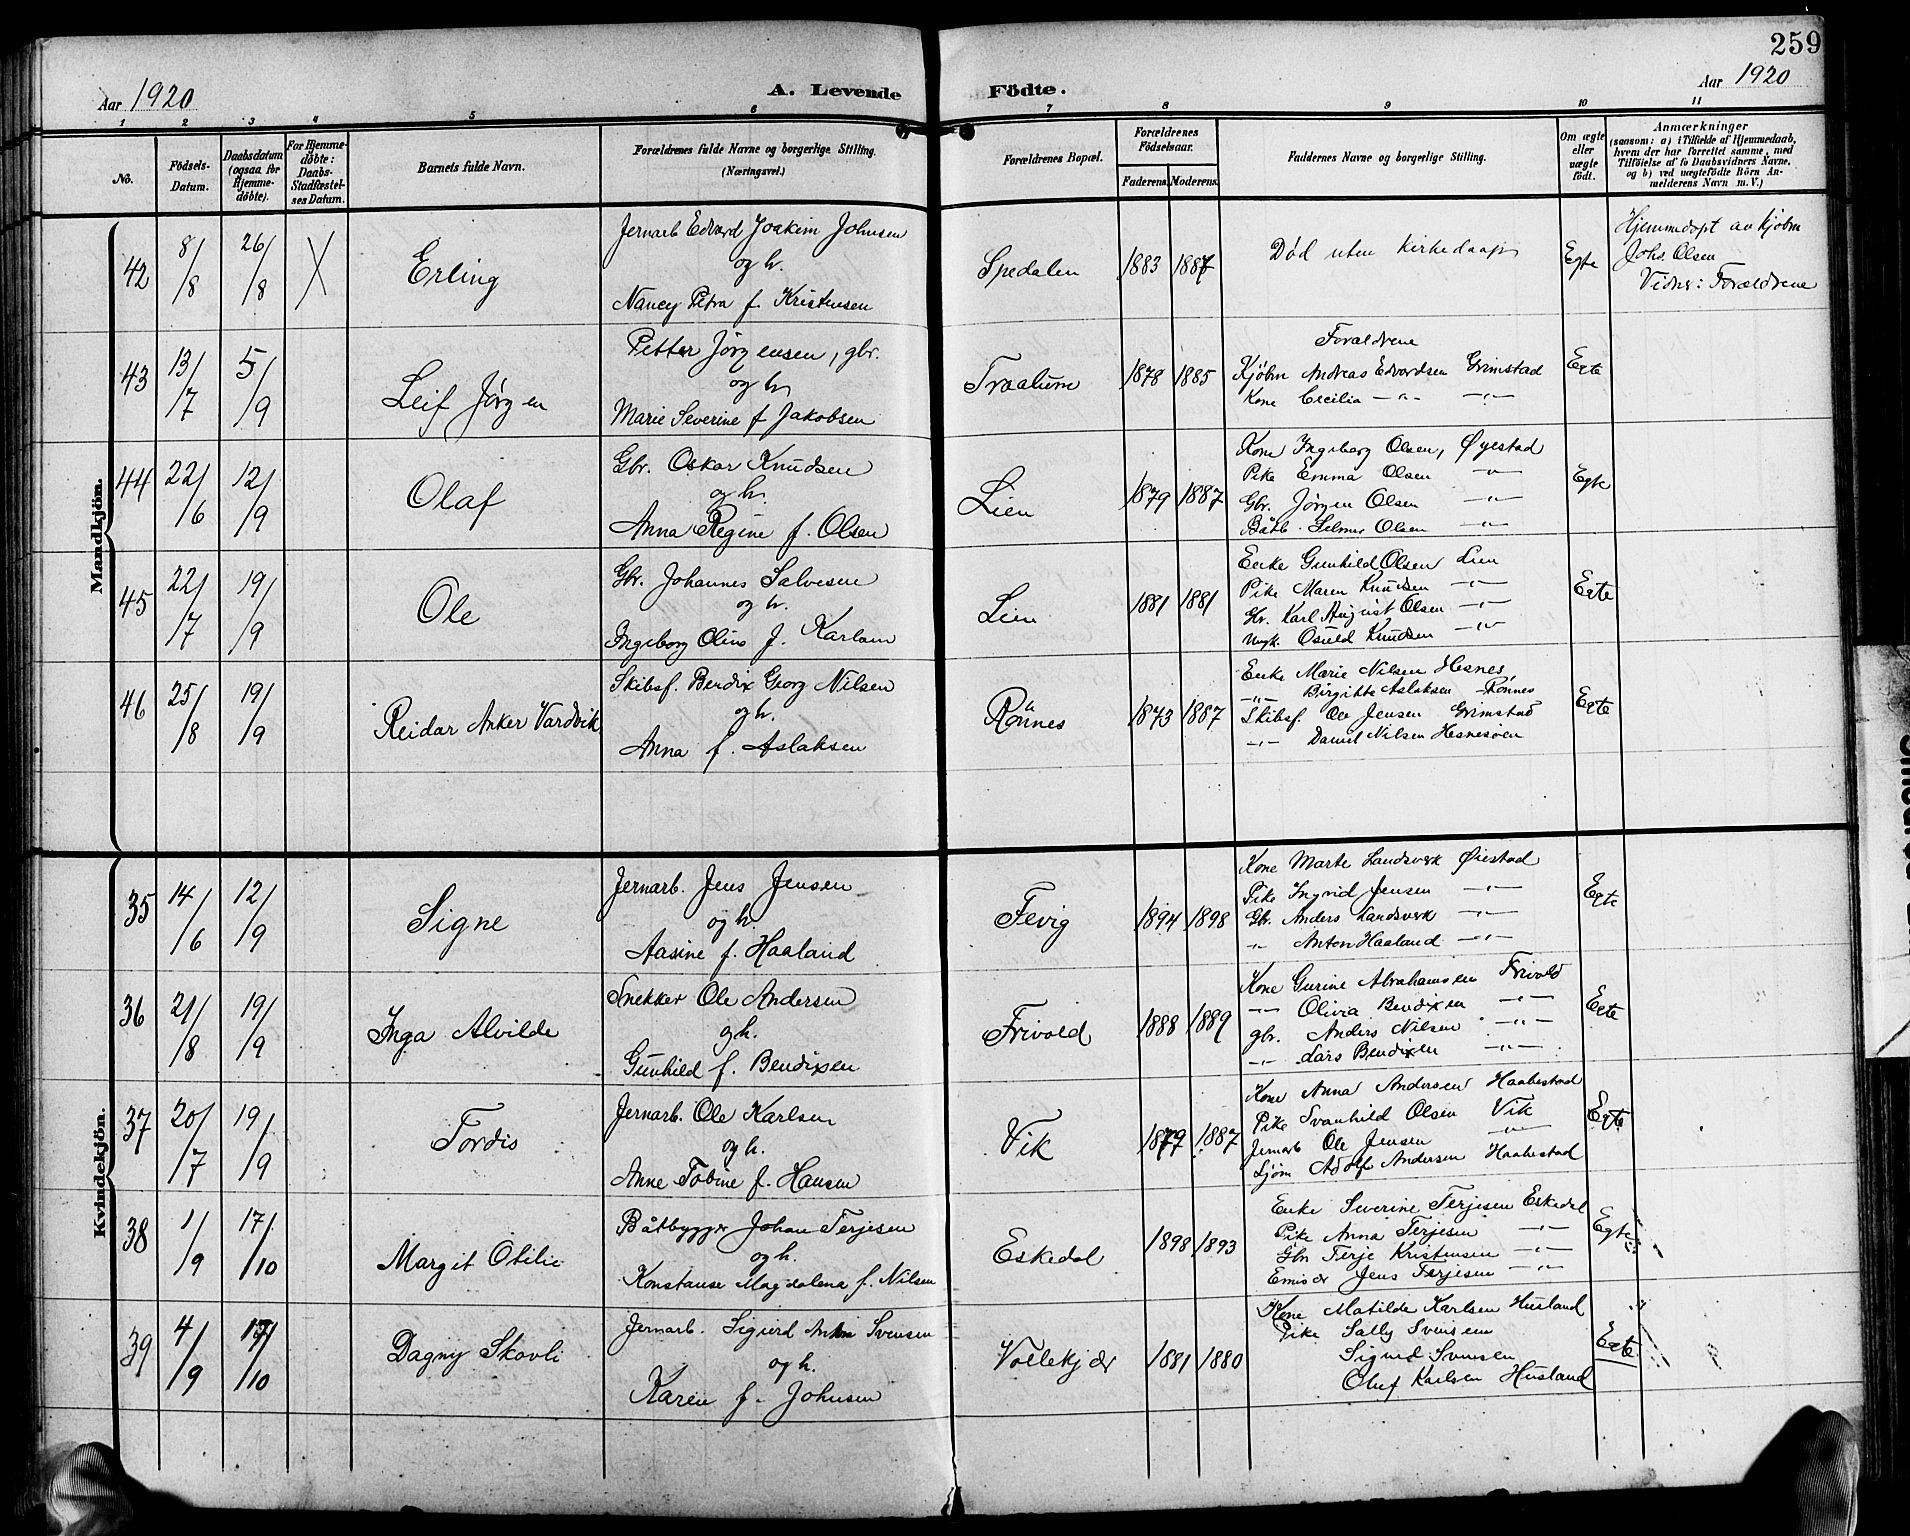 259
Aar 1920
A. Levende Födte.
Aar 1920
1 2 3 4 5 6 7 8 9 10 11
No.
Födsels-Datum.
Daabsdatum (ogsaa for Hjemmedöbte).
For Hjemmedöbte: Daabs-Stadfæstelses Datum.
Barnets fulde Navn.
Forældrenes fulde Navne og borgerlige Stilling. (Næringsvei.)
Forældrenes Bopæl.
Forældrenes Födselsaar.
Faderens. Moderens.
Faddernes Navne og borgerlige Stilling.
Om ægte eller uægte födt.
Anmærkninger
(saasom: a) i Tilfælde af Hjemmedaab, hvem der har forrettet samme, med Tilföielse af to Daabsvidners Navne, og b) ved uægtefödte Börn Anmelderens Navn m. V.)
Mandkjön.
42 8/8 26/8 X Erling
Jernarb Edvard Joakim Johnsen
og h.
Nancy Petra f. Kristensen
Spedalen 1883 1887
Død uten kirkedaap
Egte
Hjemmedøpt av kjøbm
Johs. Olsen
Vidner: Forældrene
43 13/7 5/9 Leif Jørgen
Petter Jørgensen, gbr.
og h
Marie Severine f Jakobsen
Traalum 1878 1885
Foraldrene
Kjøbm Andreas Edvardsen Grimstad
Kone Cecilia -"- -"-
Egte
44 22/6 12/9 Olaf
Gbr. Oskar Knudsen
og h.
Anna Regine f. Olsen
Lien 1879 1887
Kone Ingeborg Olsen, Øyestad
Pike Emma Olsen -"-
Gbr. Jørgen Olsen -"-
Båtb. Selmer Olsen -"-
Egte
45 22/7 19/9 Ole
Gbr. Johannes Salvesen
og h.
Ingeborg Oline f. Karlsen
Lien 1881 1881
Enke Gunhild Olsen Lien
Pike Maren Knudsen -"-
Gbr. Karl August Olsen -"-
Ungk. Osuld Knudsen -"-
Egte
46 25/8 19/9 Reidar Anker Vardvik
Skibsf. Bendix Georg Nilsen
og h.
Anna f. Aslaksen
Rønnes 1873 1887
Enke Marie Nilsen Hesnes
-"- Birgitte Aslaksen Rønnes
Skibsf. Ole Jensen Grimstad
-"- Daniel Nilsen Hesnesøen
Egte
Kvindekjön.
35 14/6 12/9 Signe
Jernarb. Jens Jensen
og h.
Aasine f. Haaland
Fevig 1894 1898
Kone Marte Landsverk Øiestad
Pike Ingrid Jensen -"-
Gbr. Anders Landsverk -"-
-"- Anton Haaland -"-
Egte
36 21/8 19/9 Inga Alvilde
Snekker Ole Andersen
og h.
Gunhild f. Bendixen
Frivold 1888 1889
Kone Gurine Abrahamsen Frivold
-"- Olivia Bendixen -"-
gbr. Anders Nilsen -"-
-"- Lars Bendixen -"-
Egte
37 20/7 19/9 Tordis
Jernarb. Ole Karlsen
og h.
Anne Tobine f. Hansen
Vik 1879 1887
Kone Anna Andersen Haabestad
Pike Svanhild Olsen Vik
Jernarb Ole Jensen -"-
Sjøm Adolf Andersen Haabestad
Egte
38 1/9 17/10 Margit Otilie
Båtbygger Johan Terjesen
og h.
Konstanse Magdalena f. Nilsen
Eskedal 1898 1893
Enke Severine Terjesen Eskedal
Pike Anna Terjesen -"-
Gbr Terje Kristensen -"-
Emisær Jens Terjesen -"-
Egte
39 4/9 17/10 Dagny Skovli
Jernarb. Sigurd Anton Svensen
og h.
Karen f. Johnsen
Vollekjær 1881 1880
Kone Matilde Karlsen Husland
Pike Sally Svensen
Sigurd Svensen
Oluf Karlsen Husland
Egte